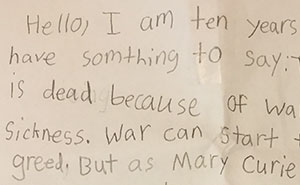 Hello, I am ten years
have somthing to say:
is dead because of wa
Sickness. War can start
greed. But as Mary Curie